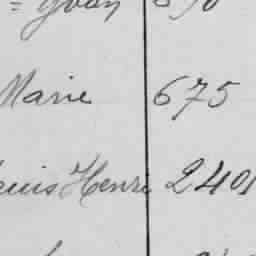 = Yvon
Marie 675
Louis Henri 2401